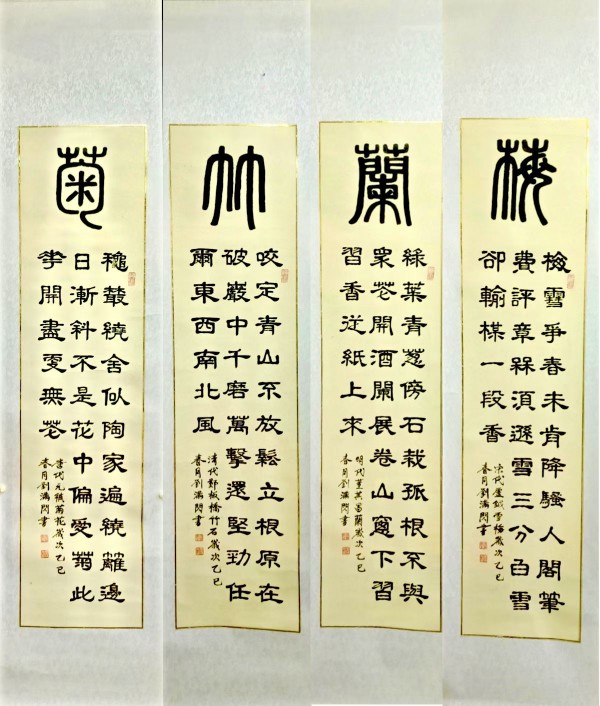 梅
梅雪爭春未肯降騷人閣筆
費評章槑須遜雪三分白雪
卻輸楳一段香
宋代盧鉞雪梅歲次乙巳
春月劉滿閃書
蘭
綠葉青蔥傍石栽孤根不與
衆芲開酒闌展卷山窗下習
習香從紙上來
明代董其昌蘭歲次乙巳
春月劉滿閃書
竹
咬定青山不放鬆立根原在
破巖中千磨萬擊還堅勁任
爾東西南北風
清代鄭板橋竹石歲次乙巳
春月劉滿閃書
菊
穐叢繞舍似陶家遍繞籬邊
日漸斜不是花中偏愛菊此
華開盡更無芲
唐代元稹菊花歲次乙巳
春月劉滿閃書